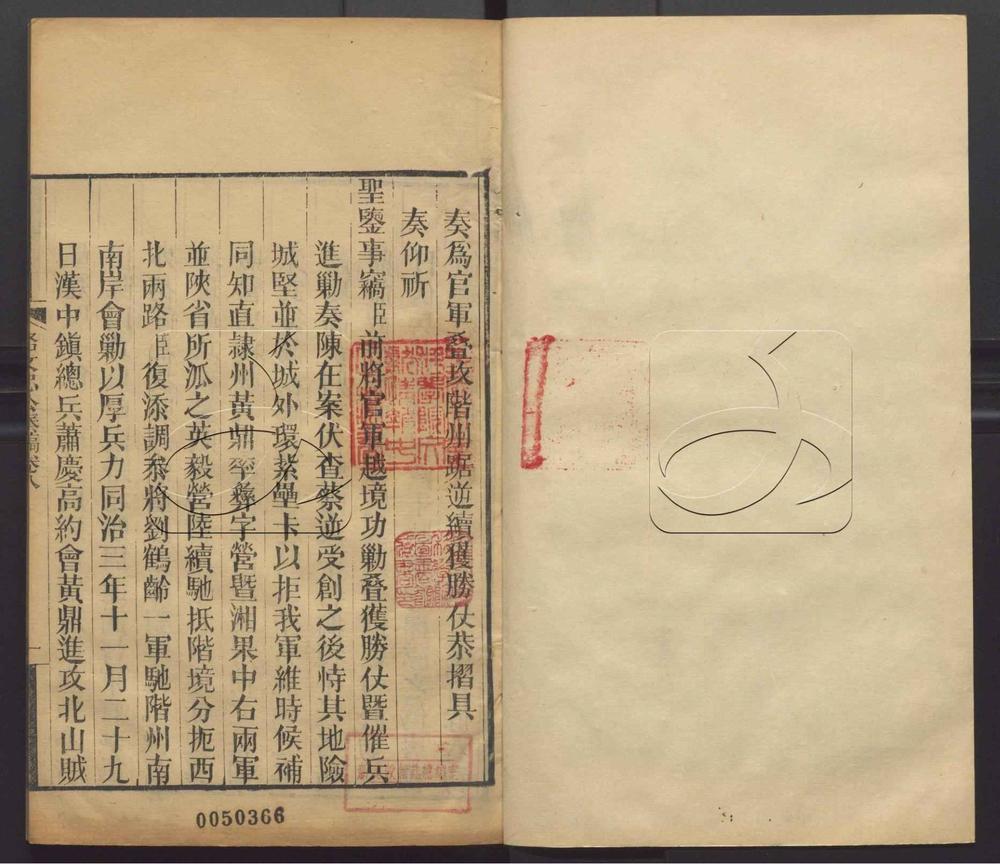 奏爲官軍叠攻階州踞逆續獲勝仗恭摺具
奏仰祈
聖鑒事竊臣前將官軍越境功勦叠獲勝仗暨催兵
進勦奏陳在案伏查蔡逆受創之後恃其地險
城堅並於城外環紮壘卡以拒我軍維時候補
同知直隷州黃鼎率彝字營暨湘果中右兩軍
並陝省所派之英毅營陸續馳抵階境分扼西
北兩路臣復添調叅將劉鶴齡一軍馳階州南
南岸會勦以厚兵力同治三年十一月二十九
日漢中鎭總兵蕭慶高約會黃鼎進攻北山賊
0050366